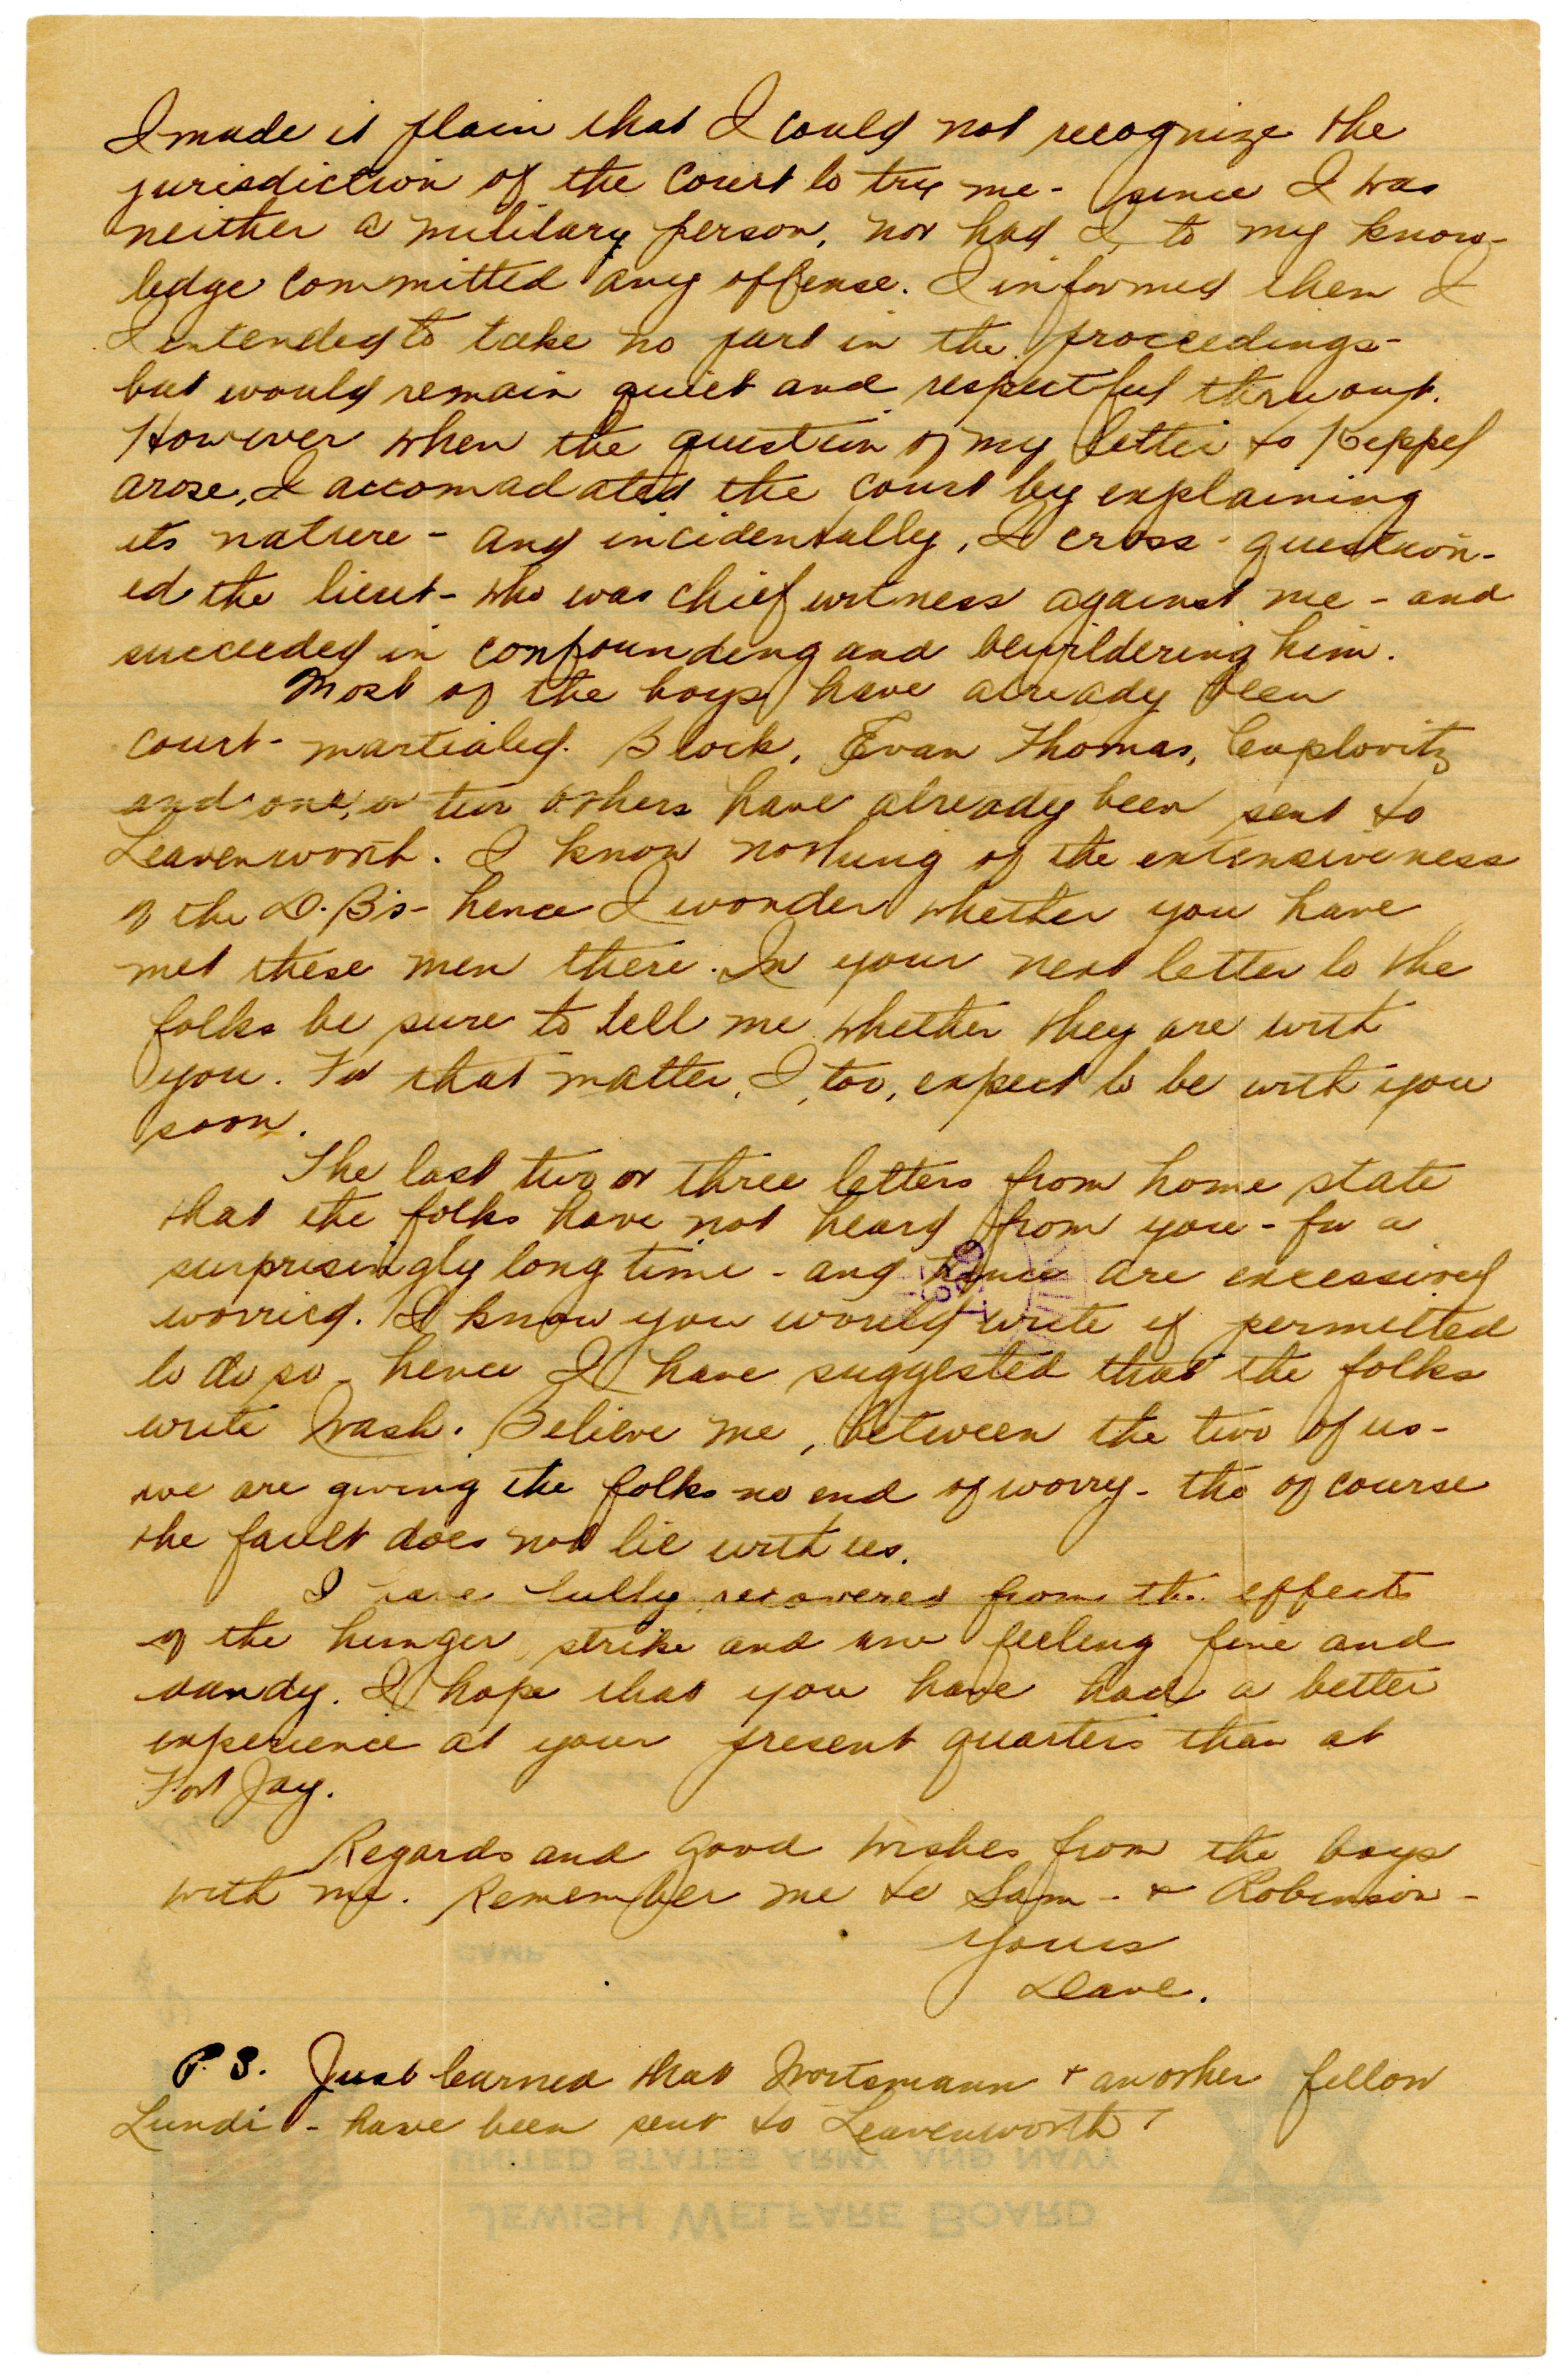 I made it plain that I could not recognize the
jurisdiction of the Court to try me - since I was
neither a military person, nor had I, to my know-
ledge committed any offense. I informed them I
I intended to take no part in the proceedings -
but would remain quiet and respectful thruout.
However when the question of my letter to Keppel
arose, I accomadated the court by explaining
its nature - and incidentally, I cross - question-
ed the lieut - who was chief witness against me - and
succeeded in confounding and bewildering him.
Most of the boys have already been
court - martialed. Block, Evan Thomas, Caplovitz
and one, or two others have already been sent to
Leavenworth. I know nothing of the extensiveness
of the D.B's - hence I wonder whether you have
met these men there. In your next letter to the
folks be sure to tell me whether they are with
you. For that matter, I, too, expect to be with you
soon.
The last two or three letters from home state
that the folks have not heard from you - for a
surprisingly long time - and hence are excessively
worried. I know you would write if permitted
to do so - hence I have suggested that the folks
write Wash. Believe me, between the two of us -
we are giving the folks no end of worry - tho of course
the fault does not lie with us.
I have fully recovered from the effects
of the hunger strike and am feeling fine and
dandy. I hope that you have had a better
experience at your present quarters than at
Fort Jay.
Regards and good wishes from the boys
with me. Remember me to Sam - & Robinson -
Yours
Dave.
P.S. Just learned that Wortsmann & another fellow
Lundi - have been sent to Leavenworth
CAMP
UNITED STATES ARMY AND NAVY
JEWISH WELFARE BOARD